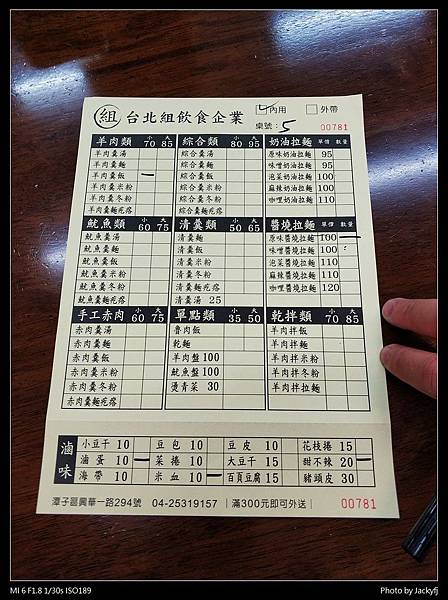 組 台北組飲食企業
內用 外帶
桌號： 5 00781
羊肉類 小70 大85
羊肉羹湯
羊肉羹麵
羊肉羹飯
羊肉羹米粉
羊肉羹冬粉
羊肉羹麵疙瘩
綜合類 小80 大95
綜合羹湯
綜合羹麵
綜合羹飯
綜合羹米粉
綜合羹冬粉
綜合羹麵疙瘩
奶油拉麵 單價 數量
原味奶油拉麵 95
味噌奶油拉麵 95
泡菜奶油拉麵 100
麻辣奶油拉麵 100
咖哩奶油拉麵 110
魷魚類 小60 大75
魷魚羹湯
魷魚羹麵
魷魚羹飯
魷魚羹米粉
魷魚羹冬粉
魷魚羹麵疙瘩
清羹類 小50 大65
清羹麵
清羹飯
清羹米粉
清羹冬粉
清羹麵疙瘩
清羹湯 25
醬燒拉麵 單價 數量
原味醬燒拉麵 100
味噌醬燒拉麵 100
泡菜醬燒拉麵 110
麻辣醬燒拉麵 110
咖哩醬燒拉麵 120
手工赤肉 小60 大75
赤肉羹湯
赤肉羹麵
赤肉羹飯
赤肉羹米粉
赤肉羹冬粉
赤肉羹麵疙瘩
單點類 小35 大50
魯肉飯
乾麵
羊肉盤 100
魷魚盤 100
燙青菜 30
乾拌類 小70 大85
羊肉拌飯
羊肉拌麵
羊肉拌米粉
羊肉拌冬粉
羊肉拌拉麵
滷味
小豆干 10 豆包 10 豆皮 10 花枝捲 15
滷蛋 10 菜捲 10 大豆干 15 甜不辣 20
海帶 10 米血 10 百頁豆腐 15 豬頭皮 30
潭子區興華一路294號 04-25319157 ｜滿300元即可外送｜ 00781
MI 6 F1.8 1/30s ISO189 Photo by Jackyfj